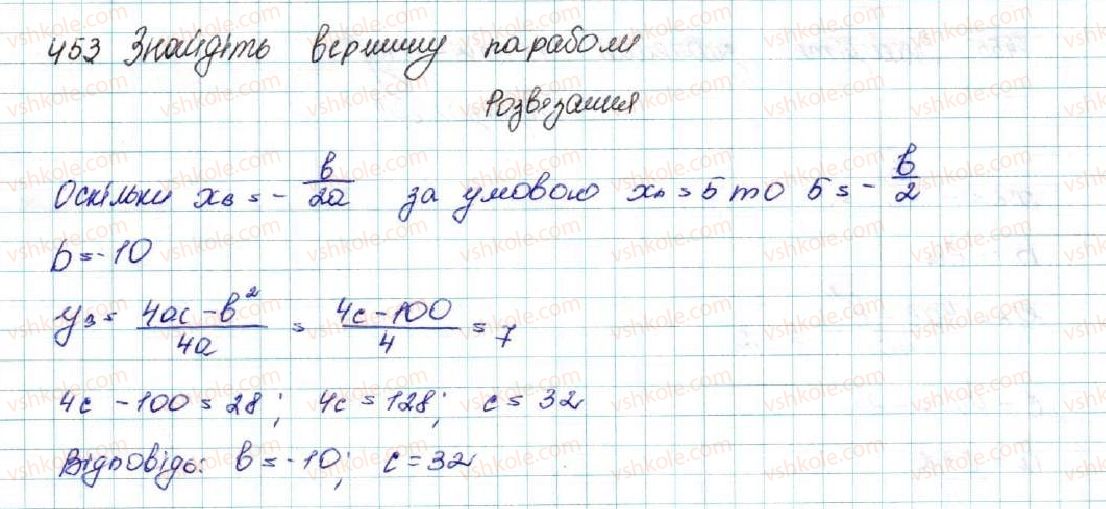 453 Знайдіть вершину параболи
Розв'язання
Оскільки xв = - в/2a за умовою xв = 5 то 5 = - в/2
b = -10
yв = 4ac - в²/4a = 4c - 100/4 = 7
4c - 100 = 28; 4c = 128; c = 32
Відповідь: в = -10; c = 32